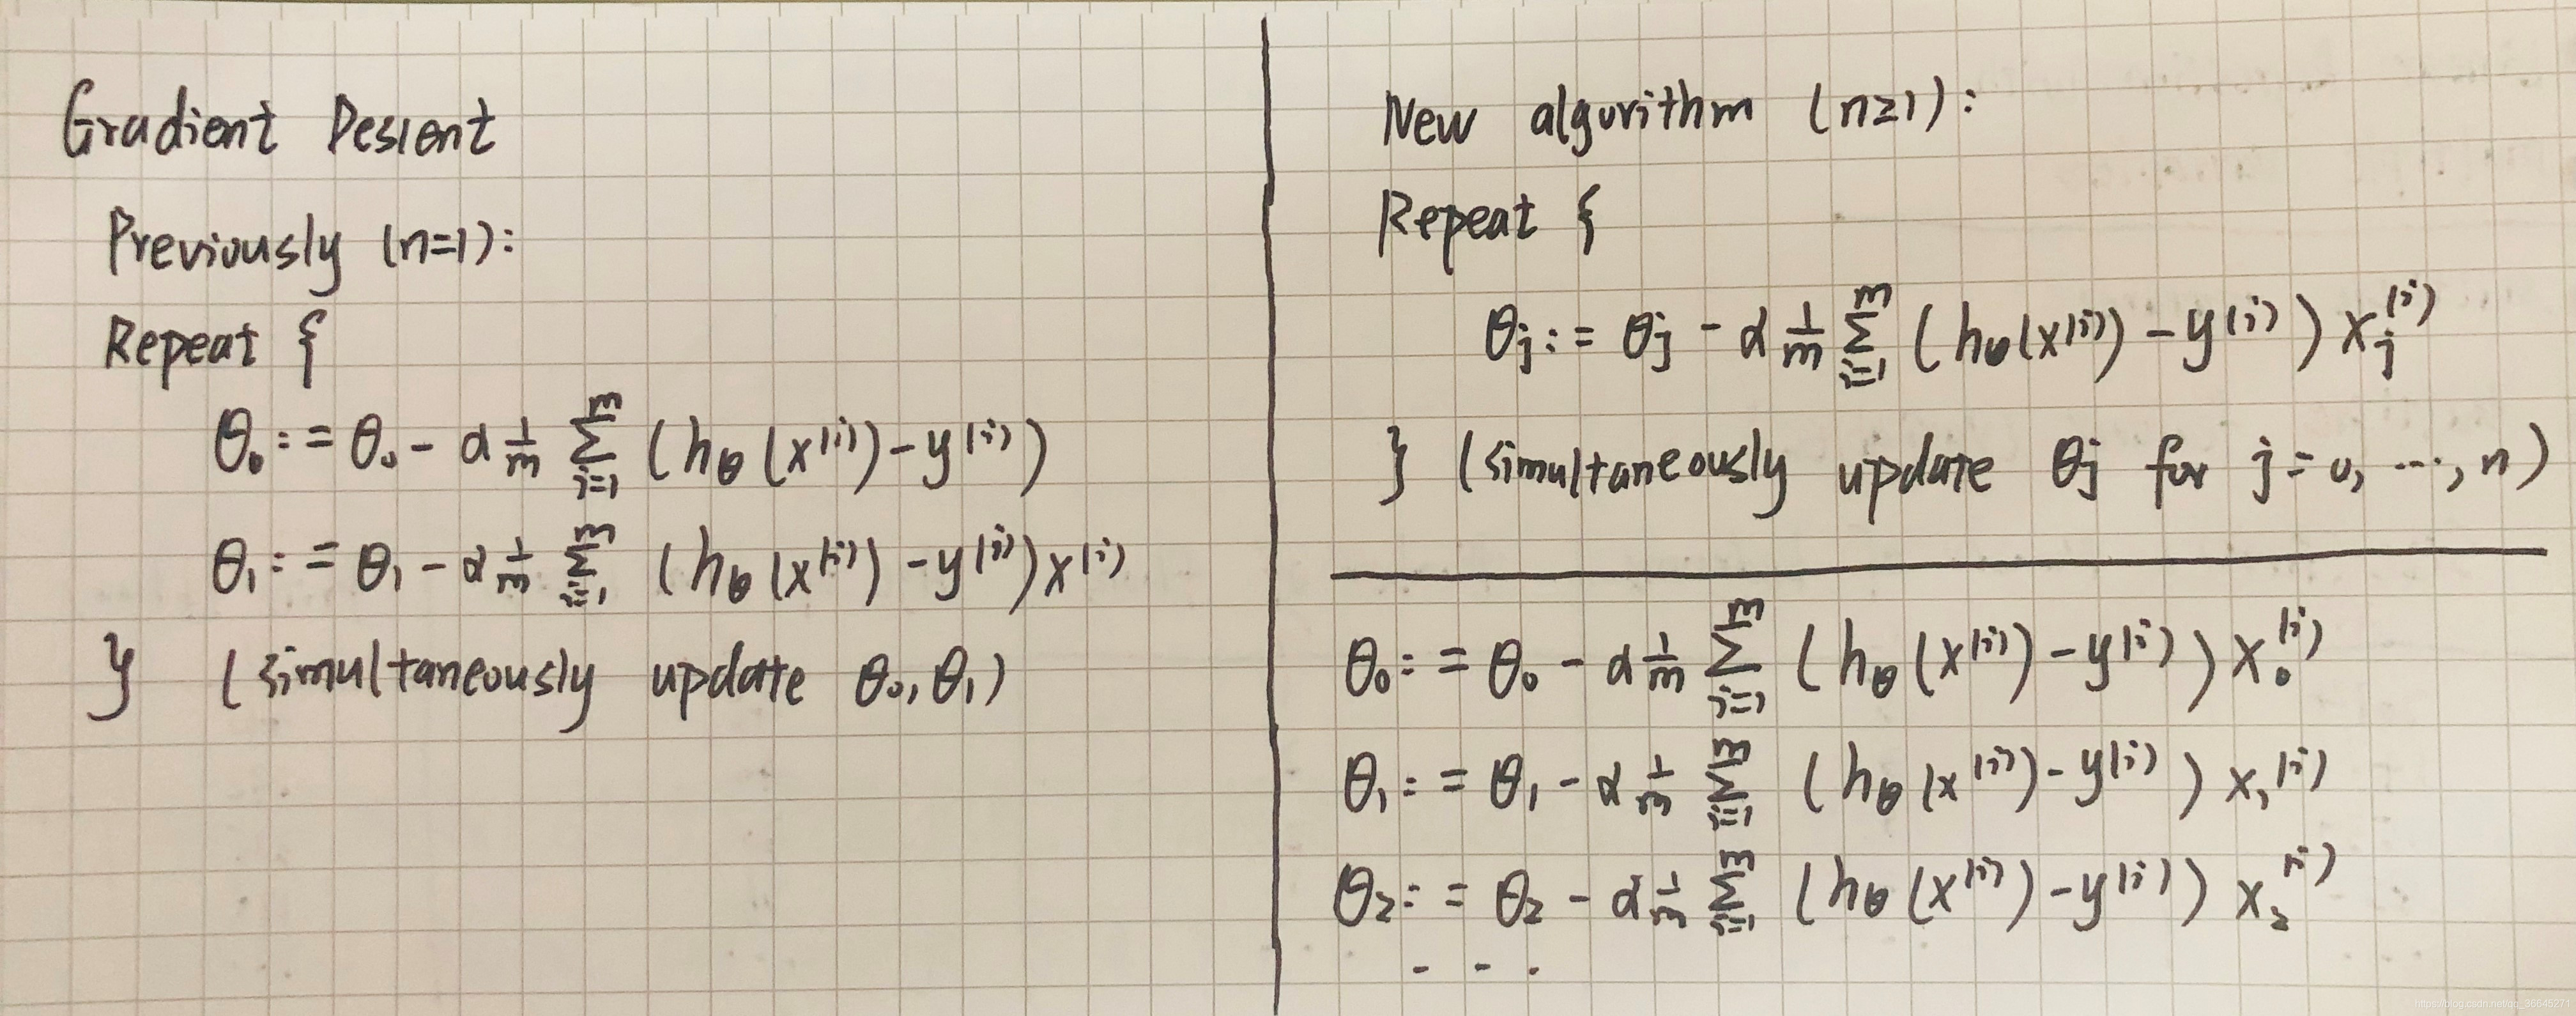 Gradient Descent
Previously (n=1):
Repeat {
θ₀ := θ₀ - α 1/m ∑ᵢ₌₁ᵐ (hθ(x⁽ⁱ⁾) - y⁽ⁱ⁾)
θ₁ := θ₁ - α 1/m ∑ᵢ₌₁ᵐ (hθ(x⁽ⁱ⁾) - y⁽ⁱ⁾) x⁽ⁱ⁾
} (simultaneously update θ₀, θ₁)
New algorithm (n≥1):
Repeat {
θⱼ := θⱼ - α 1/m ∑ᵢ₌₁ᵐ (hθ(x⁽ⁱ⁾) - y⁽ⁱ⁾) xⱼ⁽ⁱ⁾
} (simultaneously update θⱼ for j = 0, ..., n)
θ₀ := θ₀ - α 1/m ∑ᵢ₌₁ᵐ (hθ(x⁽ⁱ⁾) - y⁽ⁱ⁾) x₀⁽ⁱ⁾
θ₁ := θ₁ - α 1/m ∑ᵢ₌₁ᵐ (hθ(x⁽ⁱ⁾) - y⁽ⁱ⁾) x₁⁽ⁱ⁾
θ₂ := θ₂ - α 1/m ∑ᵢ₌₁ᵐ (hθ(x⁽ⁱ⁾) - y⁽ⁱ⁾) x₂⁽ⁱ⁾
...
https://blog.csdn.net/qq_36645271